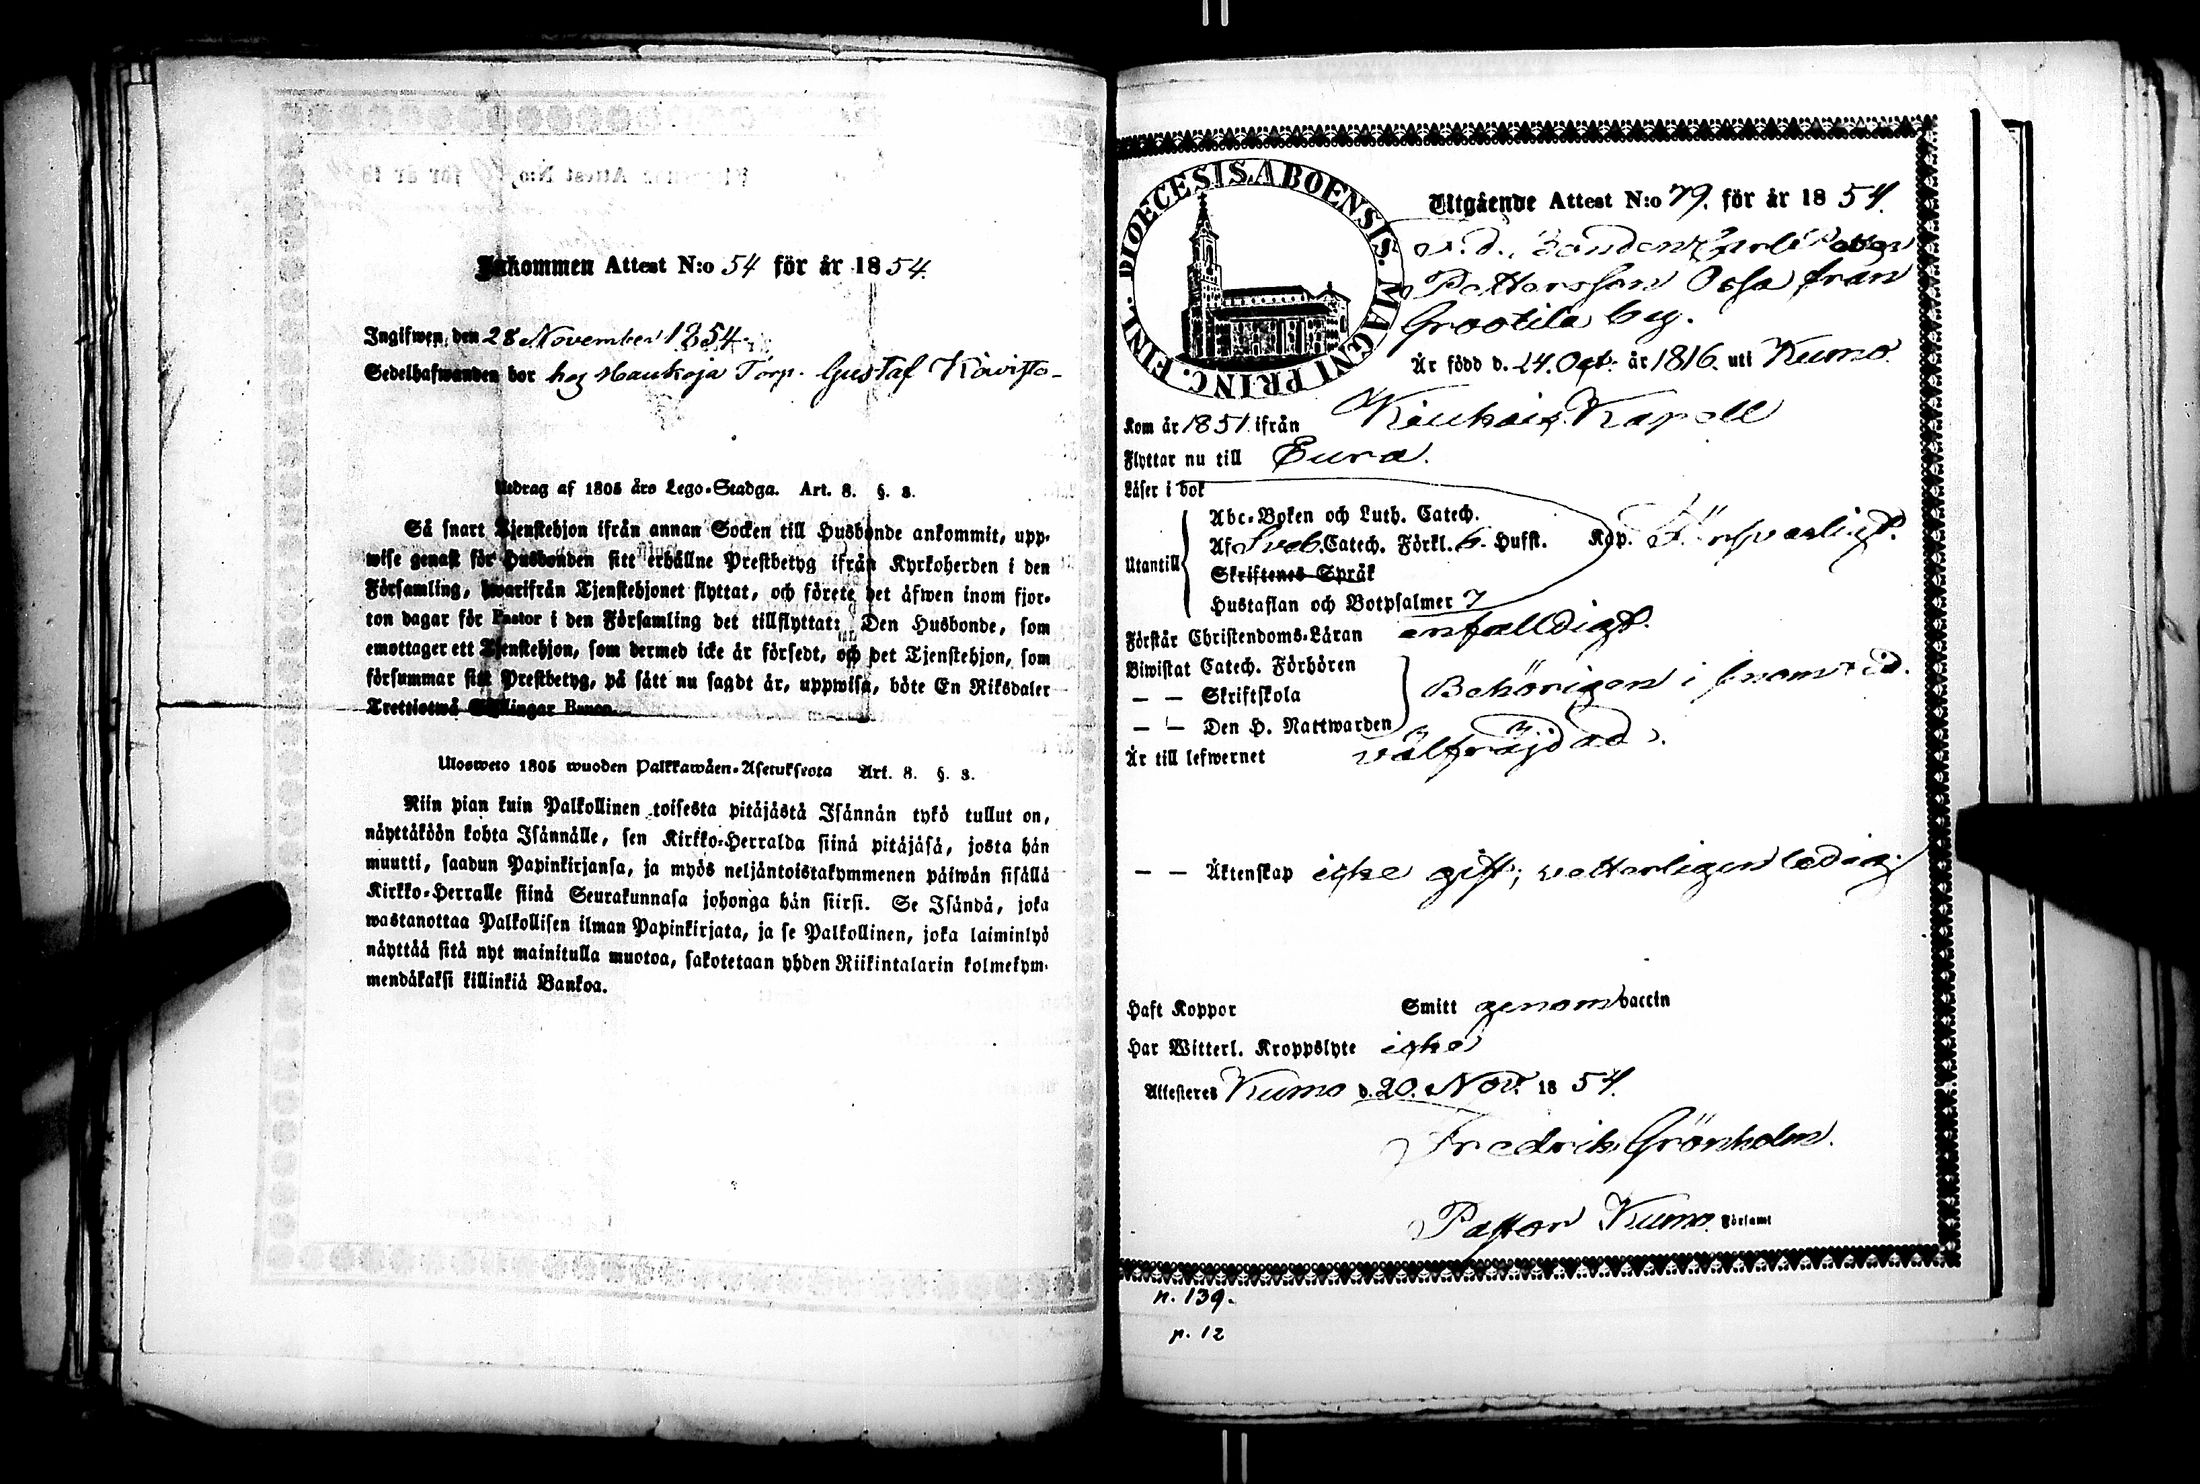 Inkommen Attest N:o 54 för år 1854.
Ingifwen den 28 November 1854.
Sedelhafwanden bor hos Haukoja Torp. Gustaf Kòivisto-
Utdrag af 1805 års Lego-Stadga. Art. 8. §. 3.
Så snart Tjenstehjon ifrån annan Socken till Husbonde ankommit, upp-
wise genast för Husbonden sitt erhållne Prestbetyg ifrån Kyrkoherden i den
Församling, hwarifrån Tjenstehjonet flyttat, och förete det äfwen inom fjor-
ton dagar för Pastor i den Församling det tillflyttat: Den Husbonde, som
emottager ett Tjenstehjon, som dermed icke är försedt, och det Tjenstehjon, som
försummar sitt Prestbetyg, på sätt nu sagdt är, uppwisa, böte En Riksdaler
Trettiotwå Skillingar Banco.
Ulosweto 1805 wuoden Palkkawäen-Asetuksesta Art. 8. §. 3.
Niin pian kuin Palkollinen toisesta pitäjästä Isännän tykö tullut on,
näyttäköön kohta Isännälle, sen Kirkko-Herralda siinä pitäjäsä, josta hän
muutti, saadun Papinkirjansa, ja myös neljäntoistakymmenen päiwän sisällä
Kirkko-Herralle siinä Seurakunnasa johonga hän siirsi. Se Isändä, joka
wastanottaa Palkollisen ilman Papinkirjata, ja se Palkollinen, joka laiminlyö
näyttää sitä nyt mainitulla muotoa, sakotetaan yhden Riikintalarin kolmekym-
mendäkaksi killinkiä Bankoa.
DIOECESIS ABOENSIS. MAGNI PRINC. FINL.
Utgående Attest N:o 79. för år 1854.
f. d. Bonden
Pettersson Ossa från
Grootila by.
Är född d. 24. Oct. år 1816. uti Kumo.
Kom år 1851 ifrån Kiukais Kapell
Flyttar nu till Eura.
Läser i bok
Abc-Boken och Luth. Catech.
Utantill Af Sveb. Catech. Förkl. 6. Hufst. Kap. Försvarligt.
Skriftenes Språk
Hustaflan och Botpsalmer 7
Förstår Christendoms-Läran enfalldigt.
Biwistat Catech. Förhören
— — Skriftskola Behörigen i
— — Den H. Nattwarden
Är till lefwernet välfräjdad.
— — Äktenskap icke gift; vetterligen ledig.
Haft Koppor Smitt genom vaccin
Har Witterl. Kroppslyte icke
Attesteres Kumo d. 20. Nov. 1854.
Fredrik Grönholm.
Pastor Kumo. Församl
n. 139.
p. 12